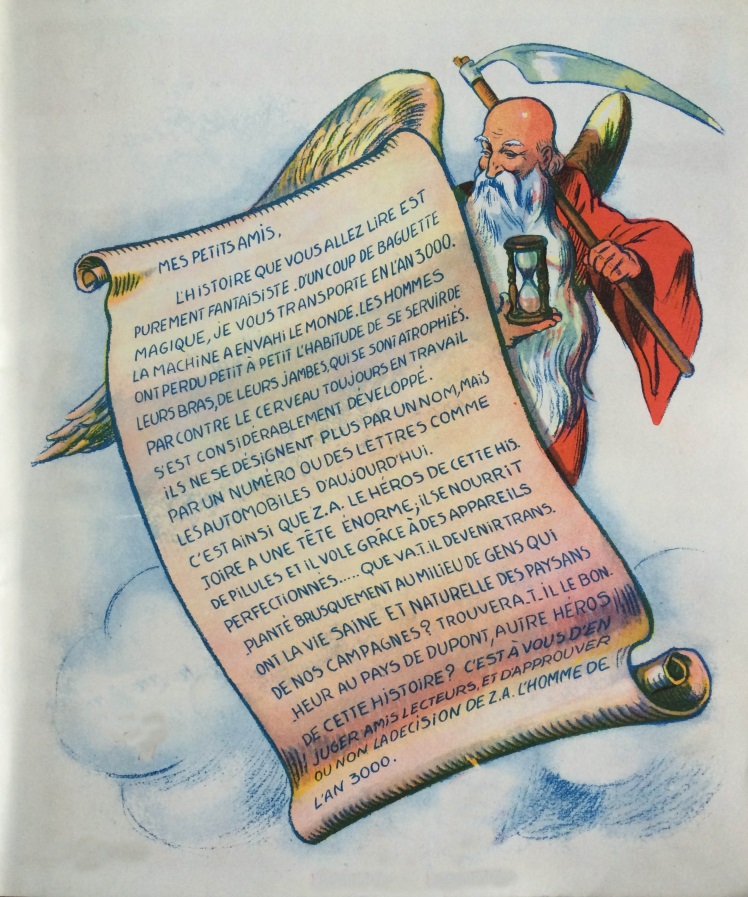 MES PETITS AMIS,
L'HISTOIRE QUE VOUS ALLEZ LIRE EST
PUREMENT FANTAISISTE. D'UN COUP DE BAGUETTE
MAGIQUE, JE VOUS TRANSPORTE EN L'AN 3000.
LA MACHINE A ENVAHI LE MONDE. LES HOMMES
ONT PERDU PETIT À PETIT L'HABITUDE DE SE SERVIR DE
LEURS BRAS, DE LEURS JAMBES, QUI SE SONT ATROPHIÉS.
PAR CONTRE LE CERVEAU TOUJOURS EN TRAVAIL
S'EST CONSIDÉRABLEMENT DÉVELOPPÉ.
ILS NE SE DÉSIGNENT PLUS PAR UN NOM, MAIS
PAR UN NUMÉRO OU DES LETTRES COMME
LES AUTOMOBILES D'AUJOURD'HUI.
C'EST AINSI QUE Z.A. LE HÉROS DE CETTE HIS.
TOIRE A UNE TÊTE ÉNORME; IL SE NOURRIT
DE PILULES ET IL VOLE GRÂCE À DES APPAREILS
PERFECTIONNÉS..... QUE VA.T.IL DEVENIR TRANS.
PLANTÉ BRUSQUEMENT AU MILIEU DE GENS QUI
ONT LA VIE SAINE ET NATURELLE DES PAYSANS
DE NOS CAMPAGNES? TROUVERA.T.IL LE BON.
HEUR AU PAYS DE DUPONT, AUTRE HÉROS
DE CETTE HISTOIRE? C'EST À VOUS D'EN
JUGER AMIS LECTEURS, ET D'APPROUVER
OU NON LA DECISION DE Z.A. L'HOMME DE
L'AN 3000.